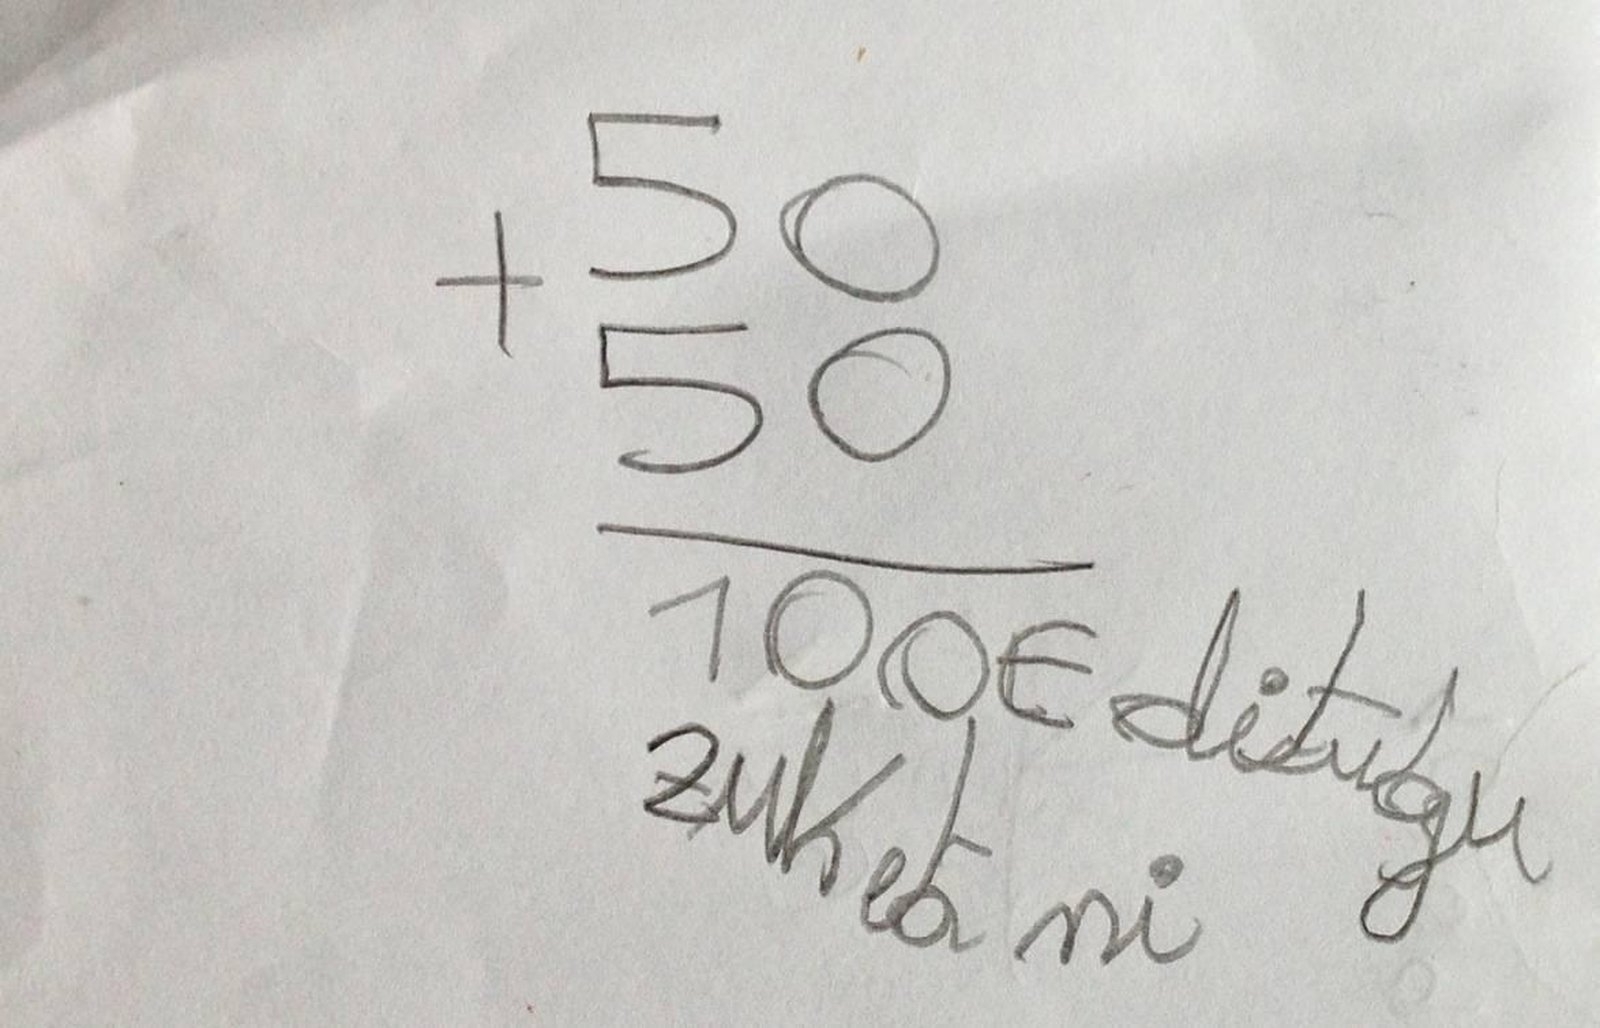 50
+
50
100€ ditugu
zuk eta ni